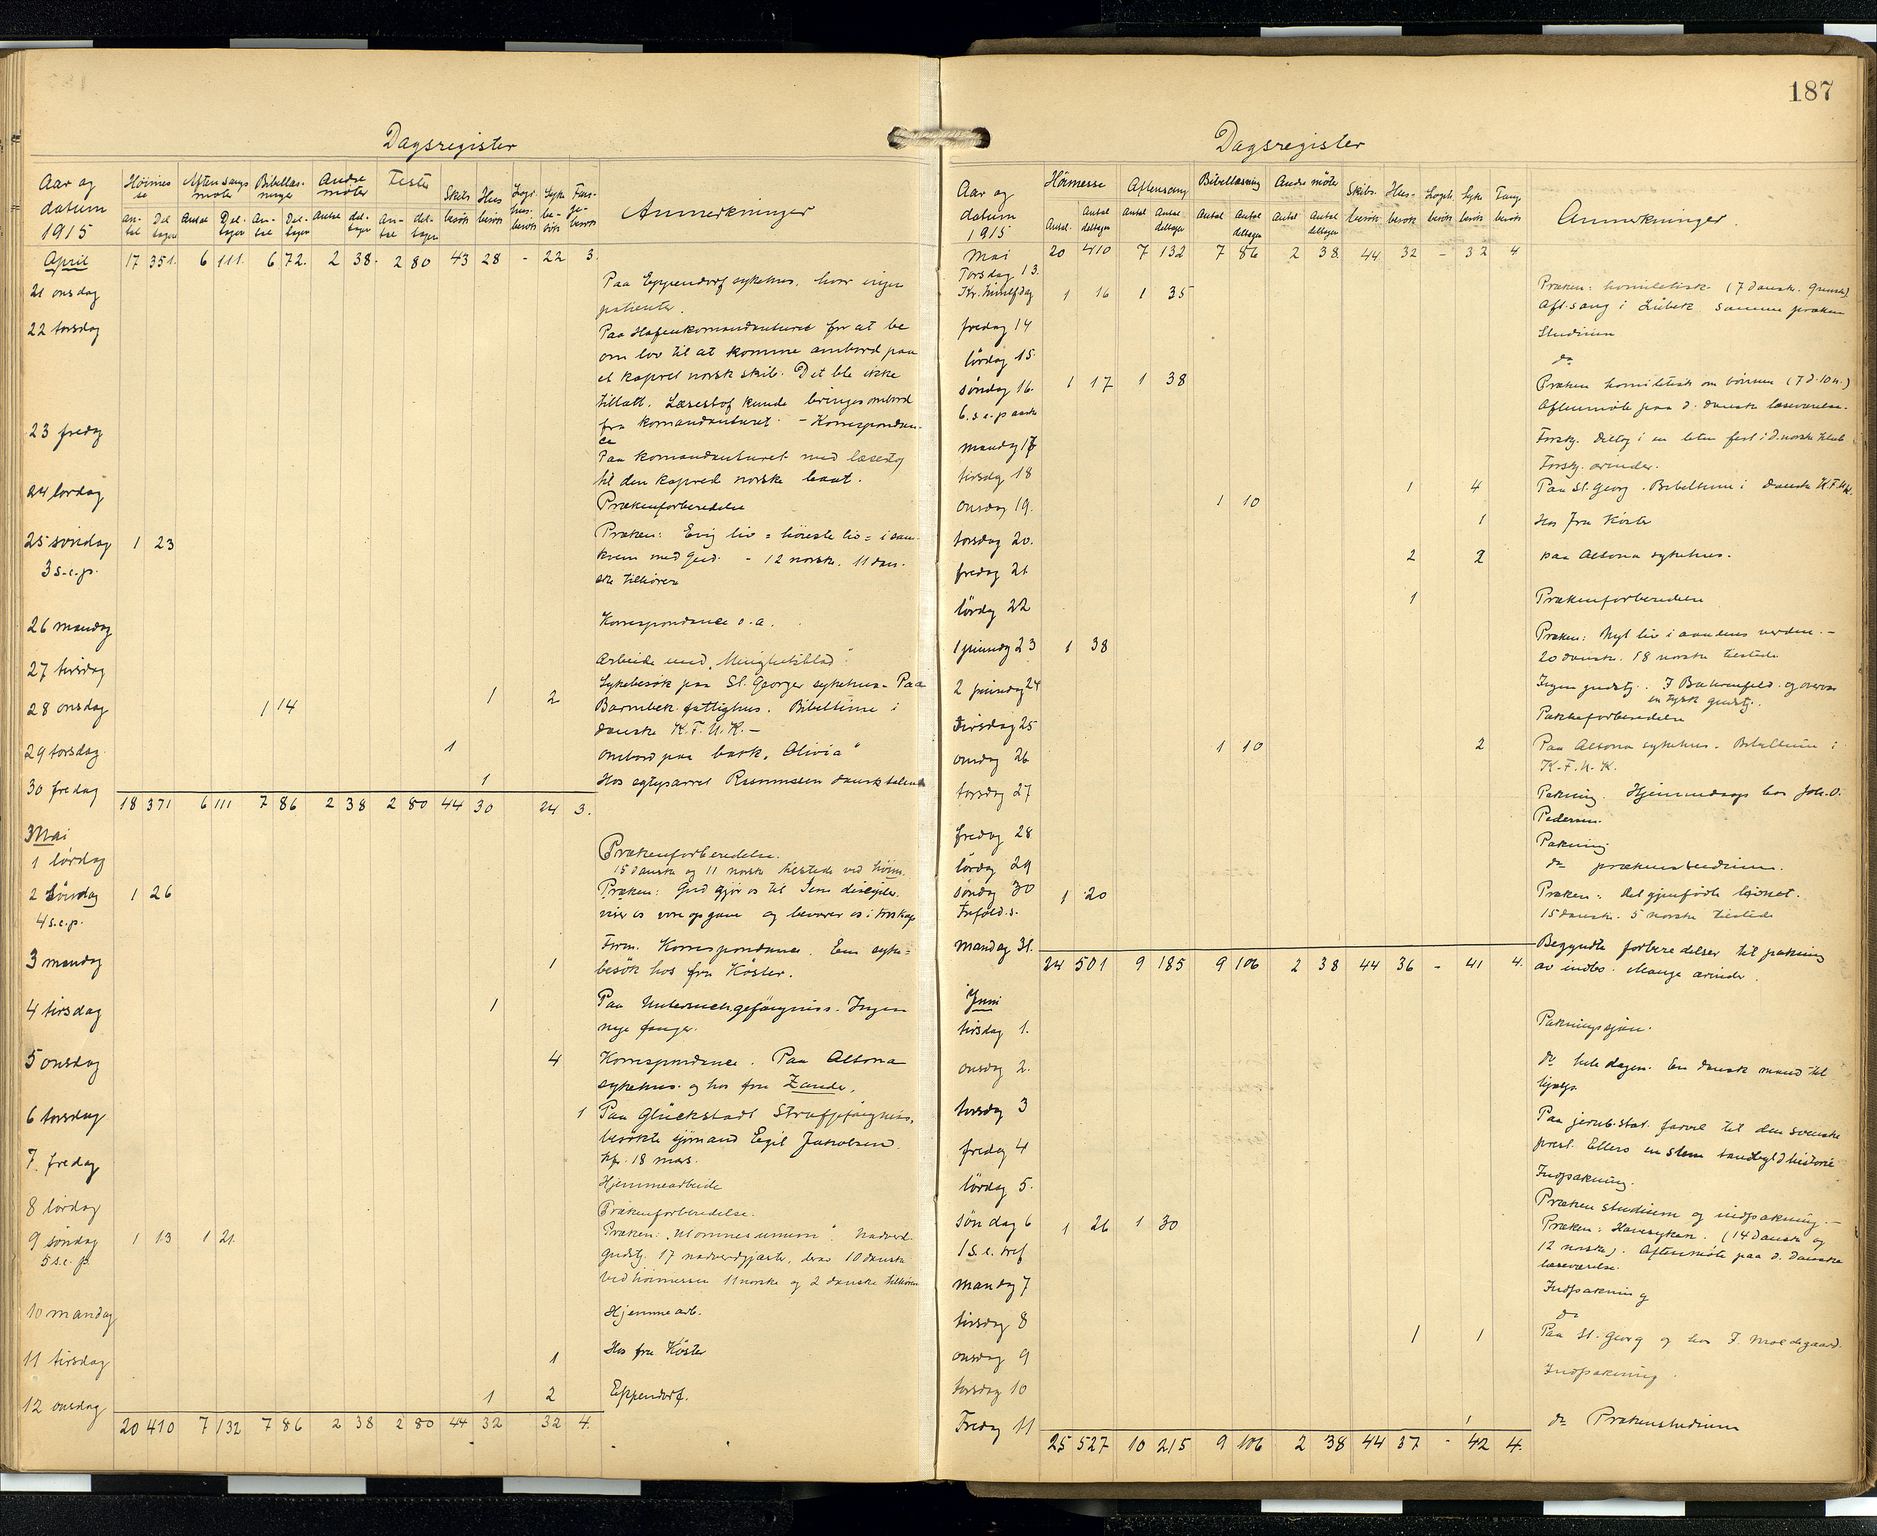 Dagsregister
Aar og datum 1915 Höimesse Aftensangs møte Bibellæsninger Andre møter Fester Skibs besök Hus besök Logi. hus. besök Syke besök Fængs. besök Anmerkninger
antal Deltager Antal Deltager Antal Deltager Antal deltager antal deltager
April 17 351. 6 111. 6 72. 2 38. 2 80 43 28 - 22 3.
21 onsdag Paa Eppendorf sykehus, hvor ingen
patienter.
22 torsdag Paa Hafenkomandanturet for at be
om lov til at komme ombord paa
et kapret norsk skib. Det ble ikke
tillatt. Læsestof kunde bringes ombord
fra komandanturet. - Korrespondan-
ce
23 fredag Paa komandanturet med læsestof
til den kapred norske baat.
24 lørdag Prækenforberedelse
25 søndag 1 23 Præken: Evig liv = høieste liv = i sam-
3 s.e.p. kvem med Gud. - 12 norske, 11 dan-
ske tilhörere
26 mandag Korrespondance o.a.
27 tirsdag Arbeide med "Menighetsblad".
Sykebesök paa St. Georger sykehus - Paa
28 onsdag 1 14 1 2 Barmbek fattighus. Bibeltime i
danske K.F.U.K. -
29 torsdag 1 ombord paa bark "Olivia"
30 fredag 1 Hos egteparret Rasmussen dansk talende
18 371 6 111 7 86 2 38 2 80 44 30 24 3.
Mai
1 lørdag Prækenforberedelse.
15 danske og 11 norske tilstede ved høim.
2 Søndag 1 26 Præken: Gud gjør os til Jesu disciple.
4 s.e.p. viser os vor opgave og bevarer os i troskap
3 mandag 1 Form. Korrespondance. Em syke-
besök hos fru Köster.
4 tirsdag 1 Paa Untersuch.gefängniss. Ingen
nye fanger.
5 onsdag 4 Korrespondance. Paa Altona
sykehus og hos fru Zande.
6 torsdag 1 Paa Glückstadt Strafgefängniss,
besökte sjömand Egil Jakobsen
7. fredag kfr. 18 mars.
Hjemmearbeide
8 lørdag Prækenforberedelse.
9 søndag 1 13 1 21. Præken: Nadverd-
5 s.e.p. gudstj. 17 nadverdgjæste, derav 10 danske
Ved höimessen 11 norske og 2 danske tilhörere
10 mandag Hjemme arb.
11 tirsdag 1 Hos fru Köster
12 onsdag 1 2 Eppendorf.
20 410 7 132 7 86 2 38 2 80 44 32 32 4.
187
Dagsregister
Aar og datum 1915 Höimesse Aftensang Bibellæsning Andre møter Skibs. besök Hus- besök Logih. besök Syke besök Fangs besök Anmerkninger.
Antal Antal deltager antal Antal deltager Antal Antal deltager Antal Antal deltager
Mai 20 410 7 132 7 86 2 38 44 32 - 32 4
Torsdag 13.
Kr. himlfdag 1 16 1 35 Præken: homiletisk (7 danske. 9 norske)
Aft.sang i Lübeck samme præken
fredag 14 Studium
lördag 15. do
søndag 16. 1 17 1 38 Præken homiletisk om bönnen (7 d. 10 n.)
6. s.e.paaske Aftenmøte paa d. danske læseværelse.
mandag 17 Forskj. Deltog i en liten fest i d. norske klub
tirsdag 18 Forskj. ærinder.
onsdag 19. 1 10 1 4 Paa St. Georg. Bibeltime i danske K.F.U.K.
torsdag 20. 1 Hos fru Köster
fredag 21 2 2 paa Altona sykehus.
lördag 22 1 Prækenforberedelse
1 pinsedag 23 1 38 Præken: Nyt liv i aandens verden. -
20 danske. 18 norske tilstede
2 pinsedag 24 Ingen gudstj. I Bahrenfeld og overvar
en tysk gudstj.
Tirsdag 25 Pakkeforberedelse
onsdag 26 1 10 2 Paa Altona sykehus. Bibeltime i
K.F.U.K.
torsdag 27 Pakning. Hjemmedaap hos Joh. O.
Pedersen.
fredag 28 Pakning.
lördag 29 do prækenstudium.
søndag 30 1 20 Præken: det gjenfødte
Trefold.s. 15 danske. 5 norske tilstede
mandag 31. Begyndte forberedelser til pakning
av indbo. Mange ærinder.
24 501 9 185 9 106 2 38 44 36 - 41 4.
Juni
tirsdag 1. Pakningsgjøn.
onsdag 2. do hele dagen. En dansk mand til
hjælp.
torsdag 3 Paa jernb.stat. farvel til den svenske
prest. Ellers en slem tandbyldhistorie
fredag 4 Indpakning.
lördag 5. Præken studium og indpakning. -
Søndag 6 1 26 1 30 Præken: Havesyken. (14 danske og
1 s.e. tref 12 norske). Aftenmøte paa d. danske
læseværelse.
mandag 7 Indpakning
tirsdag 8 do
onsdag 9 1 1 Paa St. Georg og hos F. Moldegaard.
torsdag 10 Indpakning.
Fredag 11 1 do Prækenstudium
25 527 10 215 9 106 2 38 44 37 - 42 4.